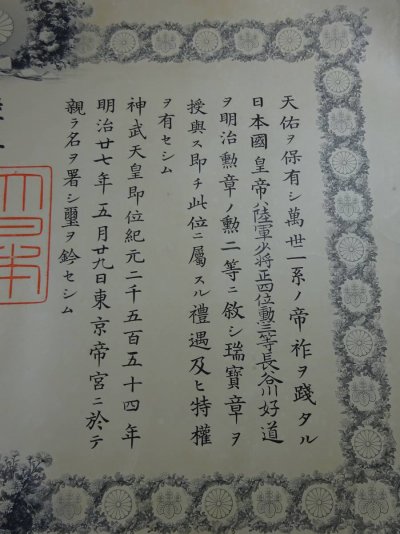 天佑ヲ保有シ萬世一系ノ帝祚ヲ踐タル
日本國皇帝ハ陸軍少將正四位勳三等長谷川好道
ヲ明治勳章ノ勳二等ニ敘シ瑞寶章ヲ
授與ス即チ此位ニ屬スル禮遇及ヒ特權
ヲ有セシム
神武天皇即位紀元二千五百五十四年
明治廿七年五月廿九日東京帝宮ニ於テ
親ラ名ヲ署シ璽ヲ鈐セシム